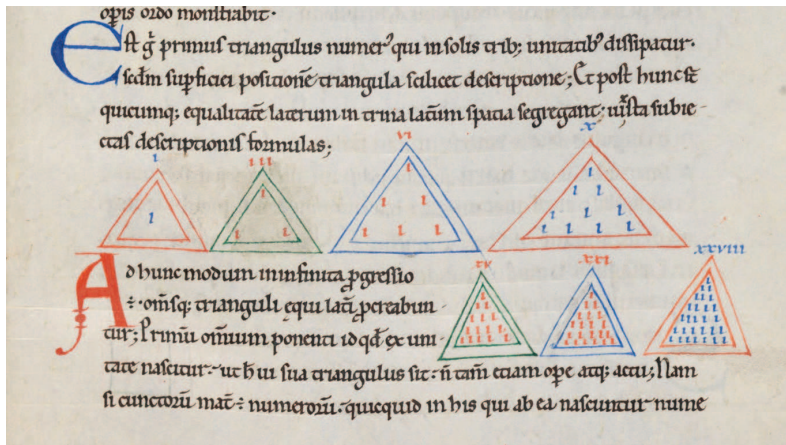 opis ordo monstrabit·
Est g̃ primus triangulus numer᾽ qui in solis trib; unitatib᾽ dissipatur·
scd̃m sup̲ficiei positionē triangula scilicet descriptione; Et post hunc st̃
quicumq; equalitatē laterum in trina latum̃ spatia segregant; iuxta subie
ctas descriptionis formulas;
i iii vi x
Ad hunc modum in infinita ꝓgressio
÷· om̃sq; trianguli equi lati ꝓcreabun
xv xxi xxviii
tur; Primū omium ponenti id qd̃ ex uni
tate nascitur· ut h̃ ui sua triangulus sit· ñ tam̃ etiam ope atq; actu; Nam
si cunctorū mat̃ ÷ numerorū· quicquid in his qui ab ea nascuntur nume